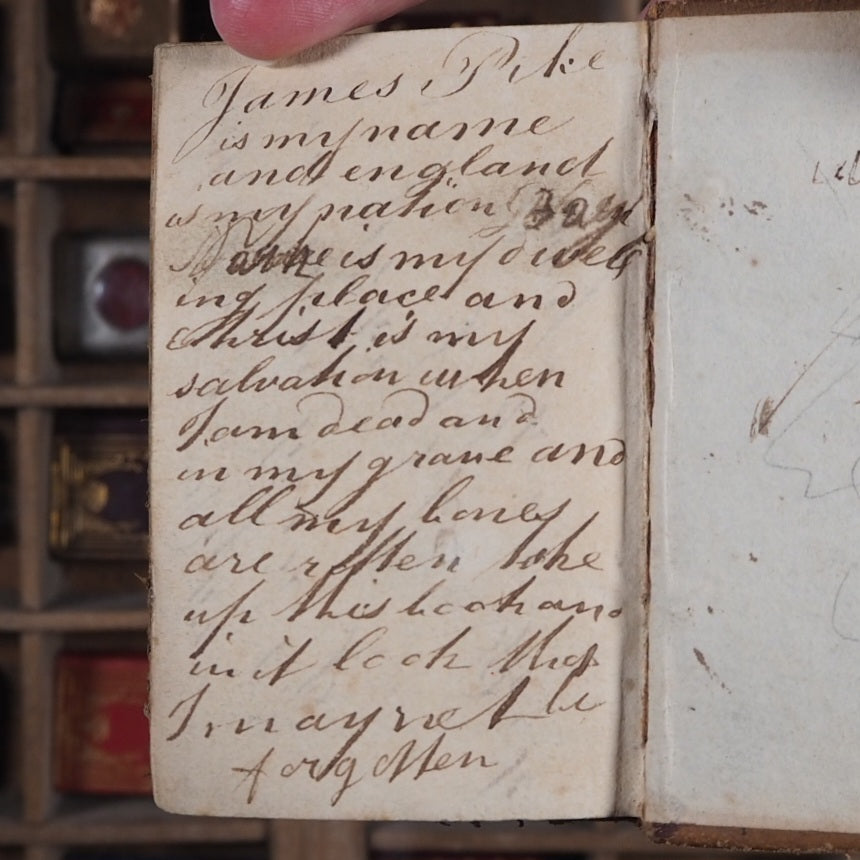 James Pike
is my name
and england
is my nation
is my dwell
ing place and
Christ is my
salvation when
I am dead and
in my grave and
all my bones
are rotten take
up this book and
in it look that
I may not be
forgotten